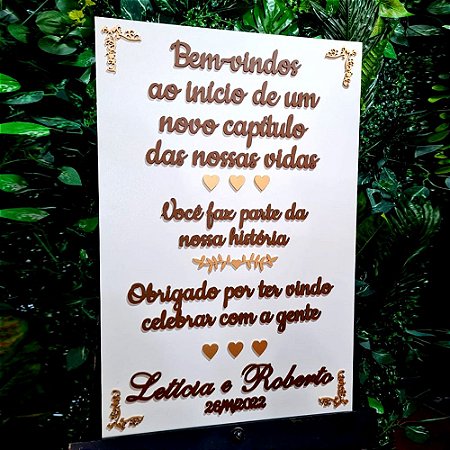 Bem-vindos
ao início de um
novo capítulo
das nossas vidas
Você faz parte da
nossa história
Obrigado por ter vindo
celebrar com a gente
Letícia e Roberto
26/11/2022